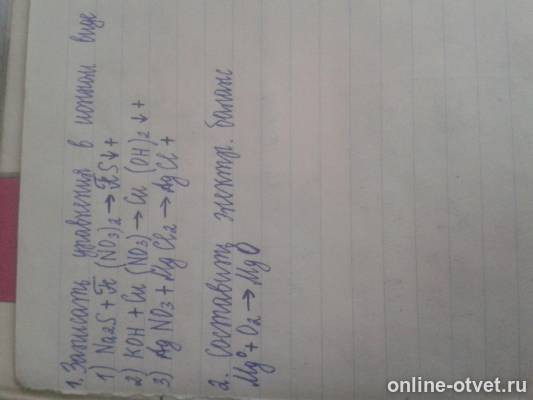 1. Записать уравнения в ионном виде
1) Na2S + Fe (NO3)2 → FeS↓ +
2) KOH + Cu (NO3) → Cu (OH)2↓ +
3) AgNO3 + MgCl2 → AgCl +
2. Составить электр. баланс
Mg⁰ + O2 → MgO
online-otvet.ru